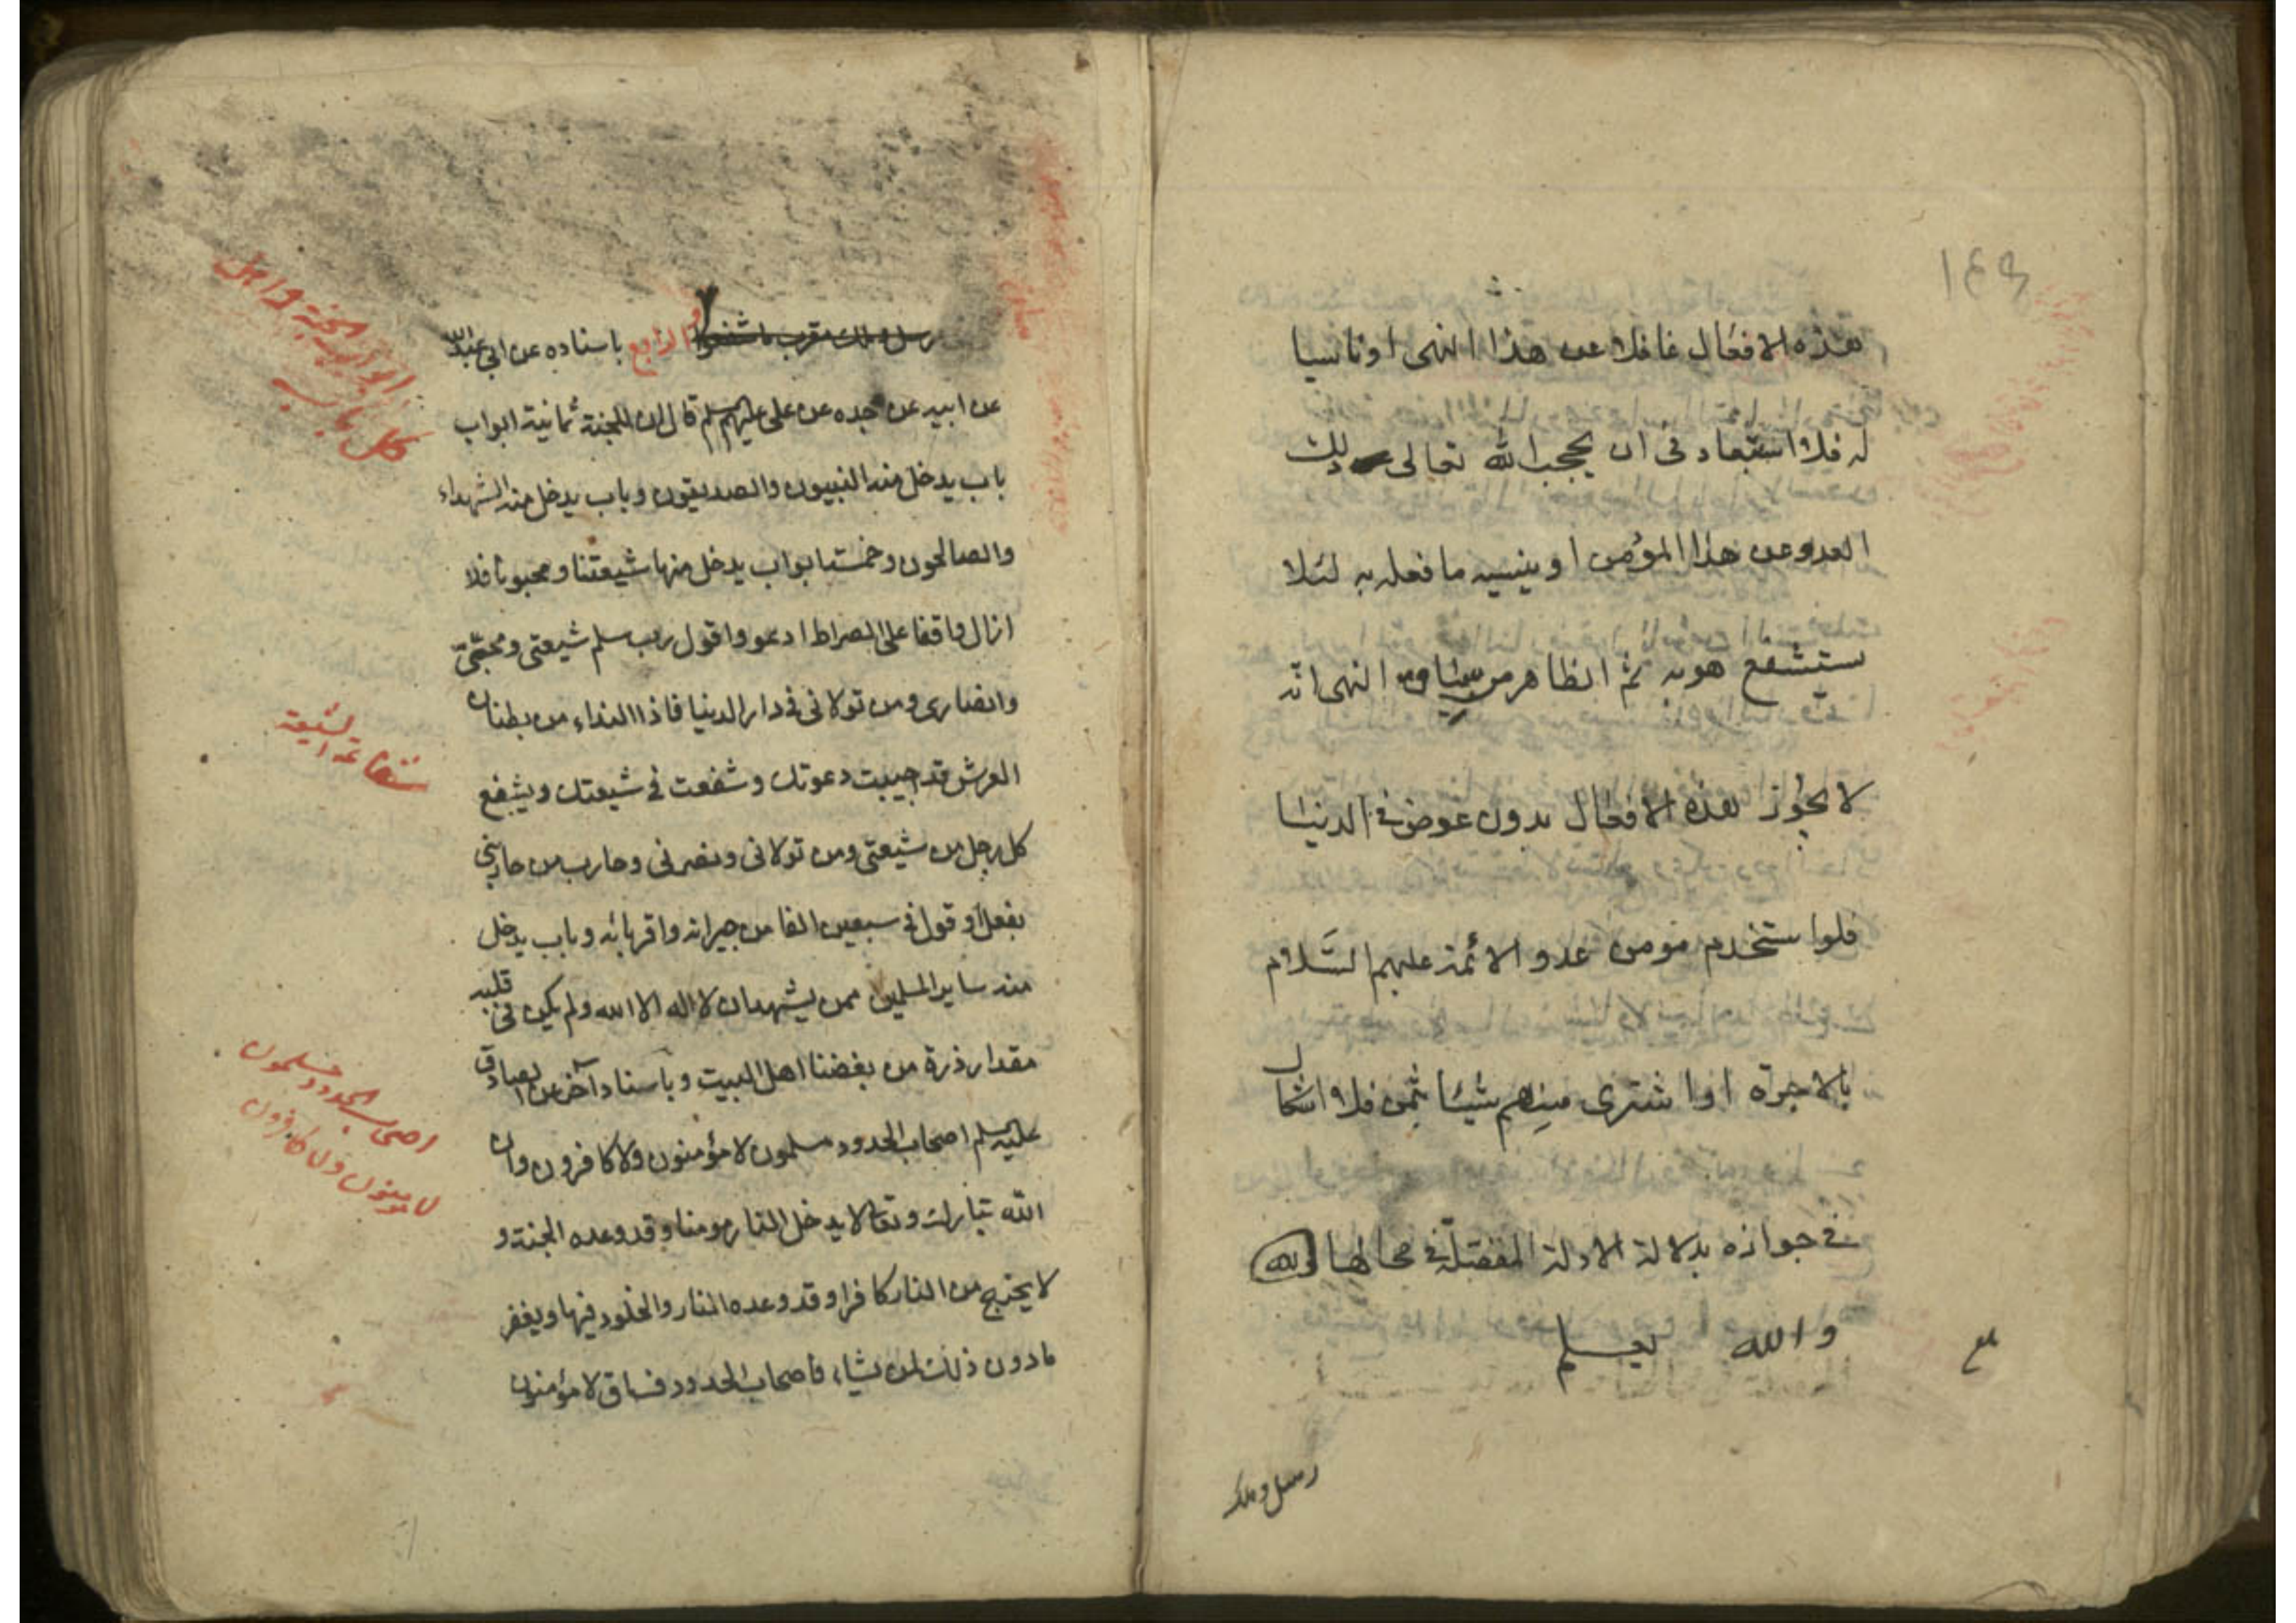 ١٤٩
هذه الافعال غافلا عن هذا النهى او ناسيا
له فلا استبعاد فى ان يحجب الله تعالى ذلك
العدو عن هذا المؤمن او ينسيه ما فعله به لئلا
يستشفع هو به ثم الظاهر من سياق النهى انه
لا يجوز هذه الافعال بدون عوض فى الدنيا
فلو استخدم مومن عدو الائمة عليهم السَّلام
بالاجرة او اشترى منهم شيئا بثمن فلا اشكال
فى جوازه بدلالة الادلة المفصّلة فى محالها
والله يعلم
رسل وملك
رسل وملك مقرب ما شفعوا الرابع باسناده عن ابي عبد الله
عن ابيه عن جده عن على عليهم سلم قال ان للجنة ثمانية ابواب
باب يدخل منه النبيون والصديقون وباب يدخل منه الشهداء
والصالحون وخمسة ابواب يدخل منها شيعتنا ومحبونا فلا
ازال واقفا على الصراط ادعو واقول رب سلم شيعتى ومحبّى
وانصارى ومن تولانى فى دار الدنيا فاذا النداء من بطنان
العرش قد اجيبت دعوتك وشفعت فى شيعتك ويشفع
كل رجل من شيعتى ومن تولانى ونصرنى وحارب من حاربنى
بفعل او قول فى سبعين الفا من جيرانه واقربائه وباب يدخل
منه ساير المسلمين ممن يشهد ان لا اله الا الله ولم يكن فى قلبه
مقدار ذرة من بغضنا اهل البيت وباسناد آخر عن الصادق
عليه سلم اصحاب الحدود مسلمون لا مؤمنون ولا كافرون وان
الله تبارك وتعالى لا يدخل النار مومنا وقد وعده الجنة و
لا يخرج من النار كافرا وقد وعده النار والخلود فيها ويغفر
ما دون ذلك لمن يشاء فاصحاب الحدود فساق لا مؤمنون
ابواب الجنة واهل
كل باب
شفاعة الشيعة
اصحاب الحدود مسلمون
لا مومنون ولا كافرون